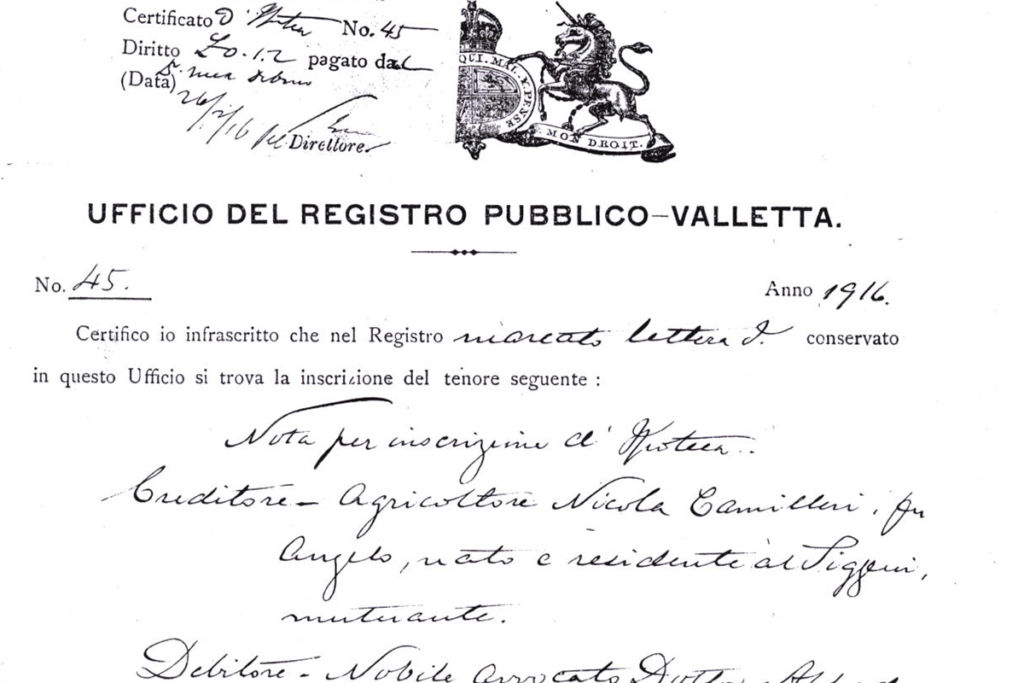 Certificato d' No. 45
Diritto £0.1.2 pagato dal
(Data)
26/2/16 Direttore.
QUI. MAL. Y. PENSE
MON DROIT.
UFFICIO DEL REGISTRO PUBBLICO—VALLETTA.
No. 45. Anno 1916.
Certifico io infrascritto che nel Registro marcato lettera I. conservato
in questo Ufficio si trova la inscrizione del tenore seguente :
Nota per inscrizione d' Ipoteca.
Creditore - Agricoltore Nicola Camilleri, fu
Angelo, nato e residente al Siggieui,
mutuante.
Debitore - Nobile Avvocato Dottor